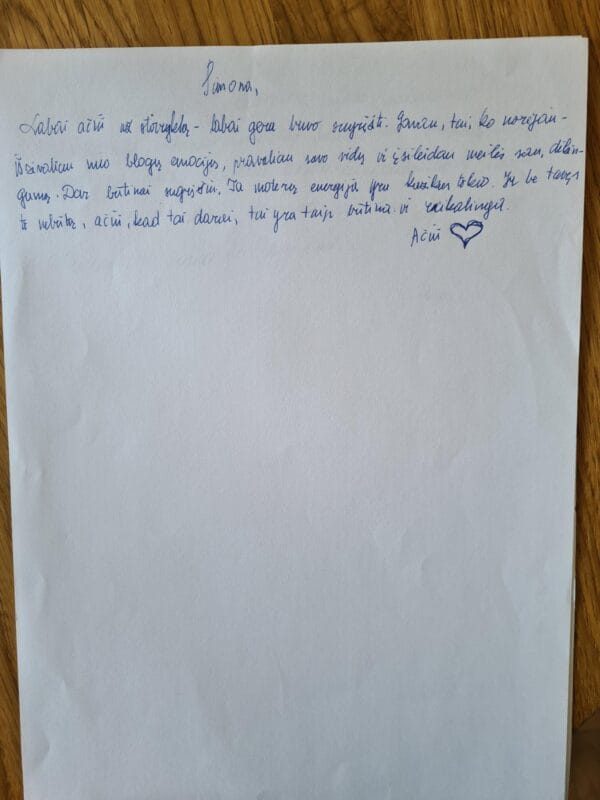 Simona,
Labai ačiū už stovyklą - labai gera buvo sugrįžti. Gavau, tai, ko norėjau -
išsivaliau nuo blogų emocijų, pravaliau savo vidų ir įsileidau meilės sau, dėkin-
gumą. Dar būtinai sugrįšiu. Ta moterų energija yra kažkas tokio. Ir be tavęs
to nebūtų, ačiū, kad tai darai, tai yra taip būtina ir reikalinga.
Ačiū